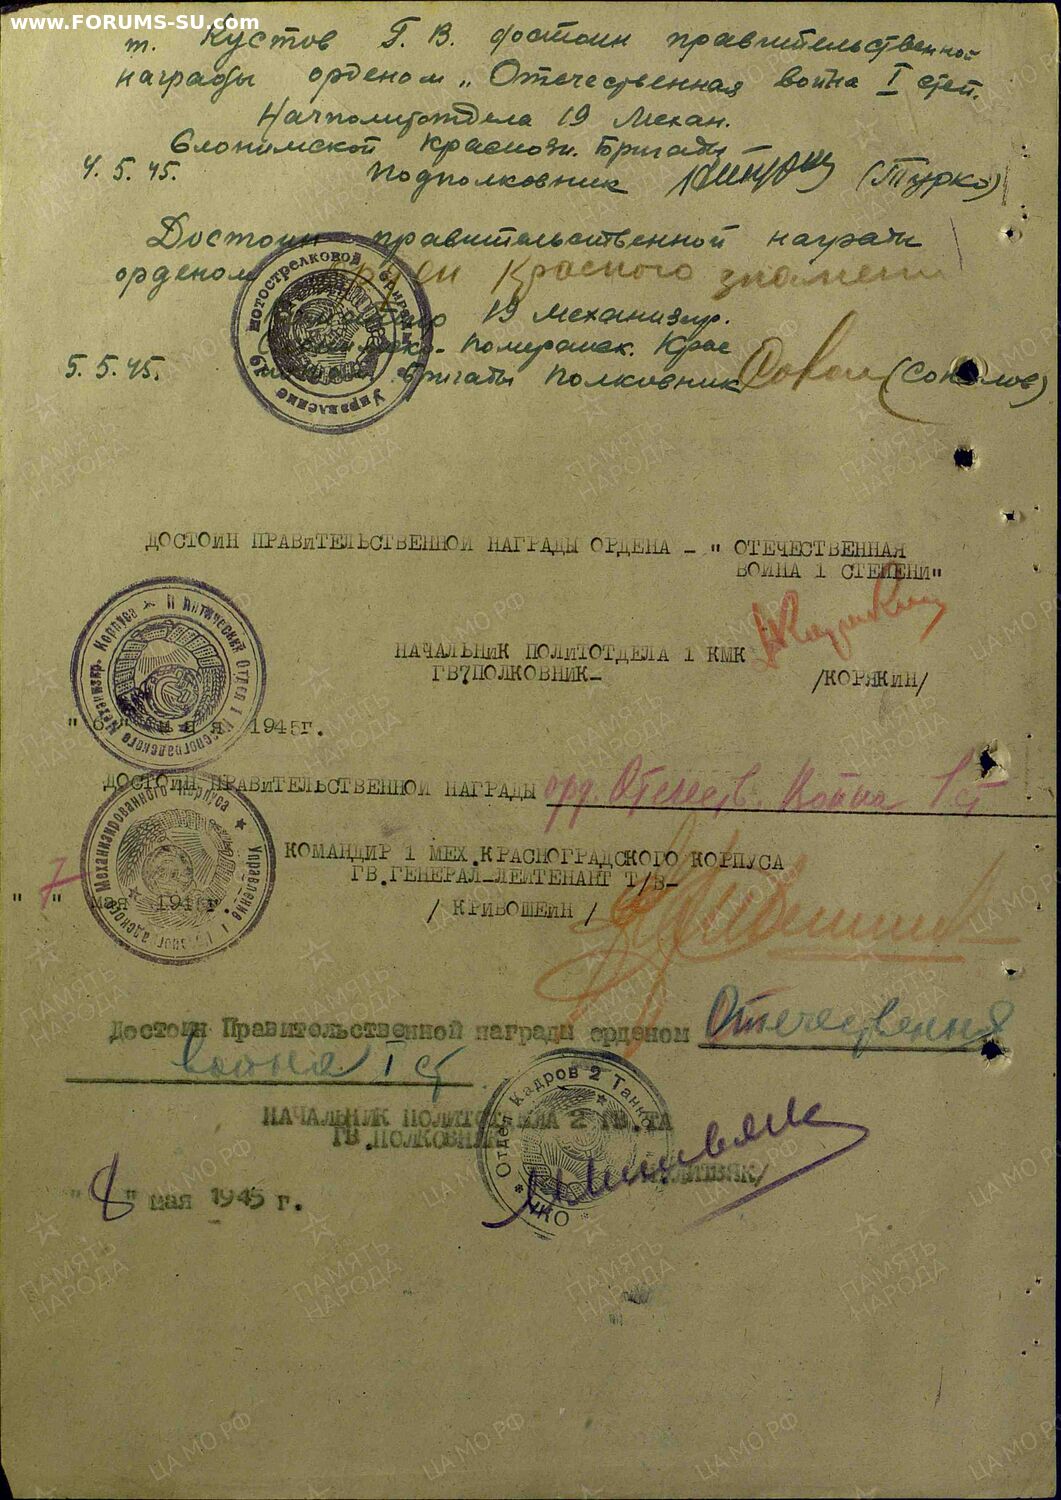 www.FORUMS-SU.com
т. Кустов Г. В. достоин правительственной
награды орденом „Отечественная война I степ.
Начполитотдела 19 Механ.
Слонимской Краснозн. Бригады
4.5.45. Подполковник (Турко)
Достоин правительственной награды
орденом Орден Красного знамени
19 механизир.
Померанск. Крас
5.5.45. бригады полковник (Соколов)
мотострелковой бригады
Управление 19
ДОСТОИН ПРАВИТЕЛЬСТВЕННОЙ НАГРАДЫ ОРДЕНА - " ОТЕЧЕСТВЕННАЯ
ВОЙНА 1 СТЕПЕНИ"
НАЧАЛЬНИК ПОЛИТОТДЕЛА 1 КМК
ГВ7ПОЛКОВНИК- /КОРЯКИН/
Политический Отдел 1 Красноградского Механизир. Корпуса
" 6 " м а я 1945г.
ДОСТОИН ПРАВИТЕЛЬСТВЕННОЙ НАГРАДЫ орд. Отечеств. Война 1 ст
КОМАНДИР 1 МЕХ.КРАСНОГРАДСКОГО КОРПУСА
ГВ.ГЕНЕРАЛ-ЛЕЙТЕНАНТ Т/В-
" 7 " мая 1945г. / КРИВОШЕИН /
Управление 1 Красноградского Механизированного Корпуса
Достоин Правительственной награды орденом Отечественная
война I ст
НАЧАЛЬНИК ПОЛИТОТДЕЛА 2 ГВ.ТА
ГВ.ПОЛКОВНИК
/ЛИТВЯК/
Отдел Кадров 2 Танко
НКО
" 8 " мая 1945 г.
ПАМЯТЬ НАРОДА
ЦА МО РФ